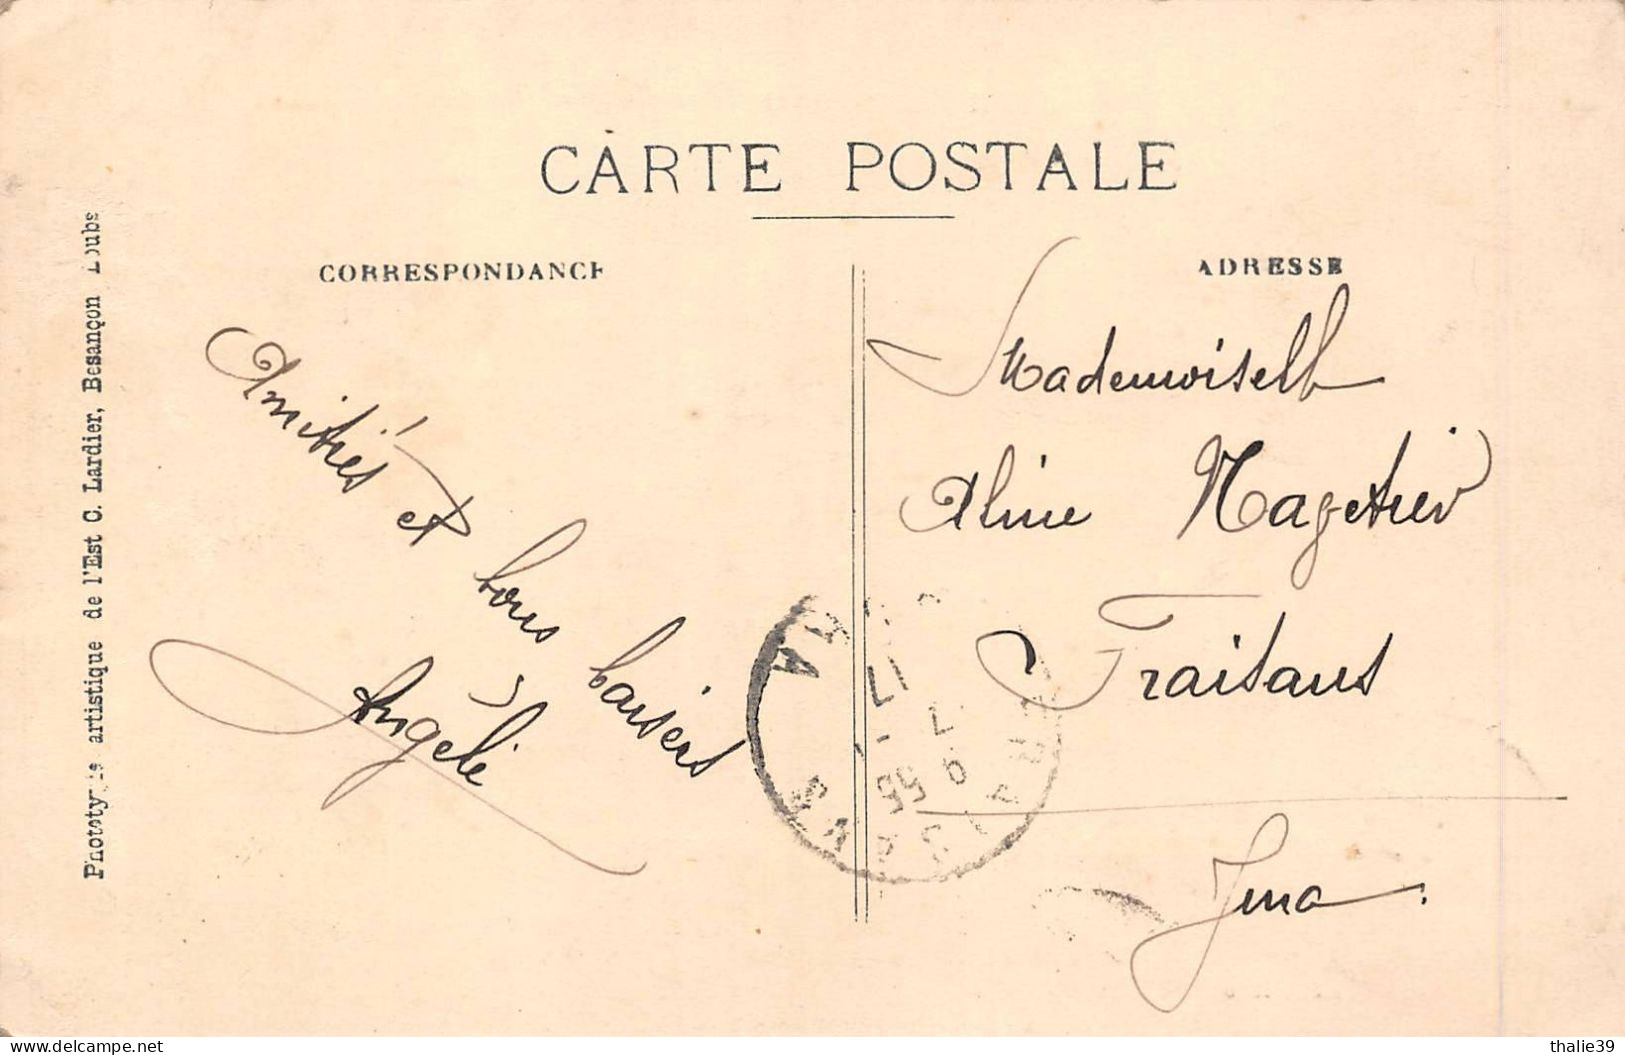 CARTE POSTALE
CORRESPONDANCE
ADRESSE
Phototypie artistique de l'Est C. Lardier, Besançon Doubs
Amitiés et bons baisers
Angèle
Mademoiselle
Aline
Fraisans
Jura.
delcampe.net
thalie39